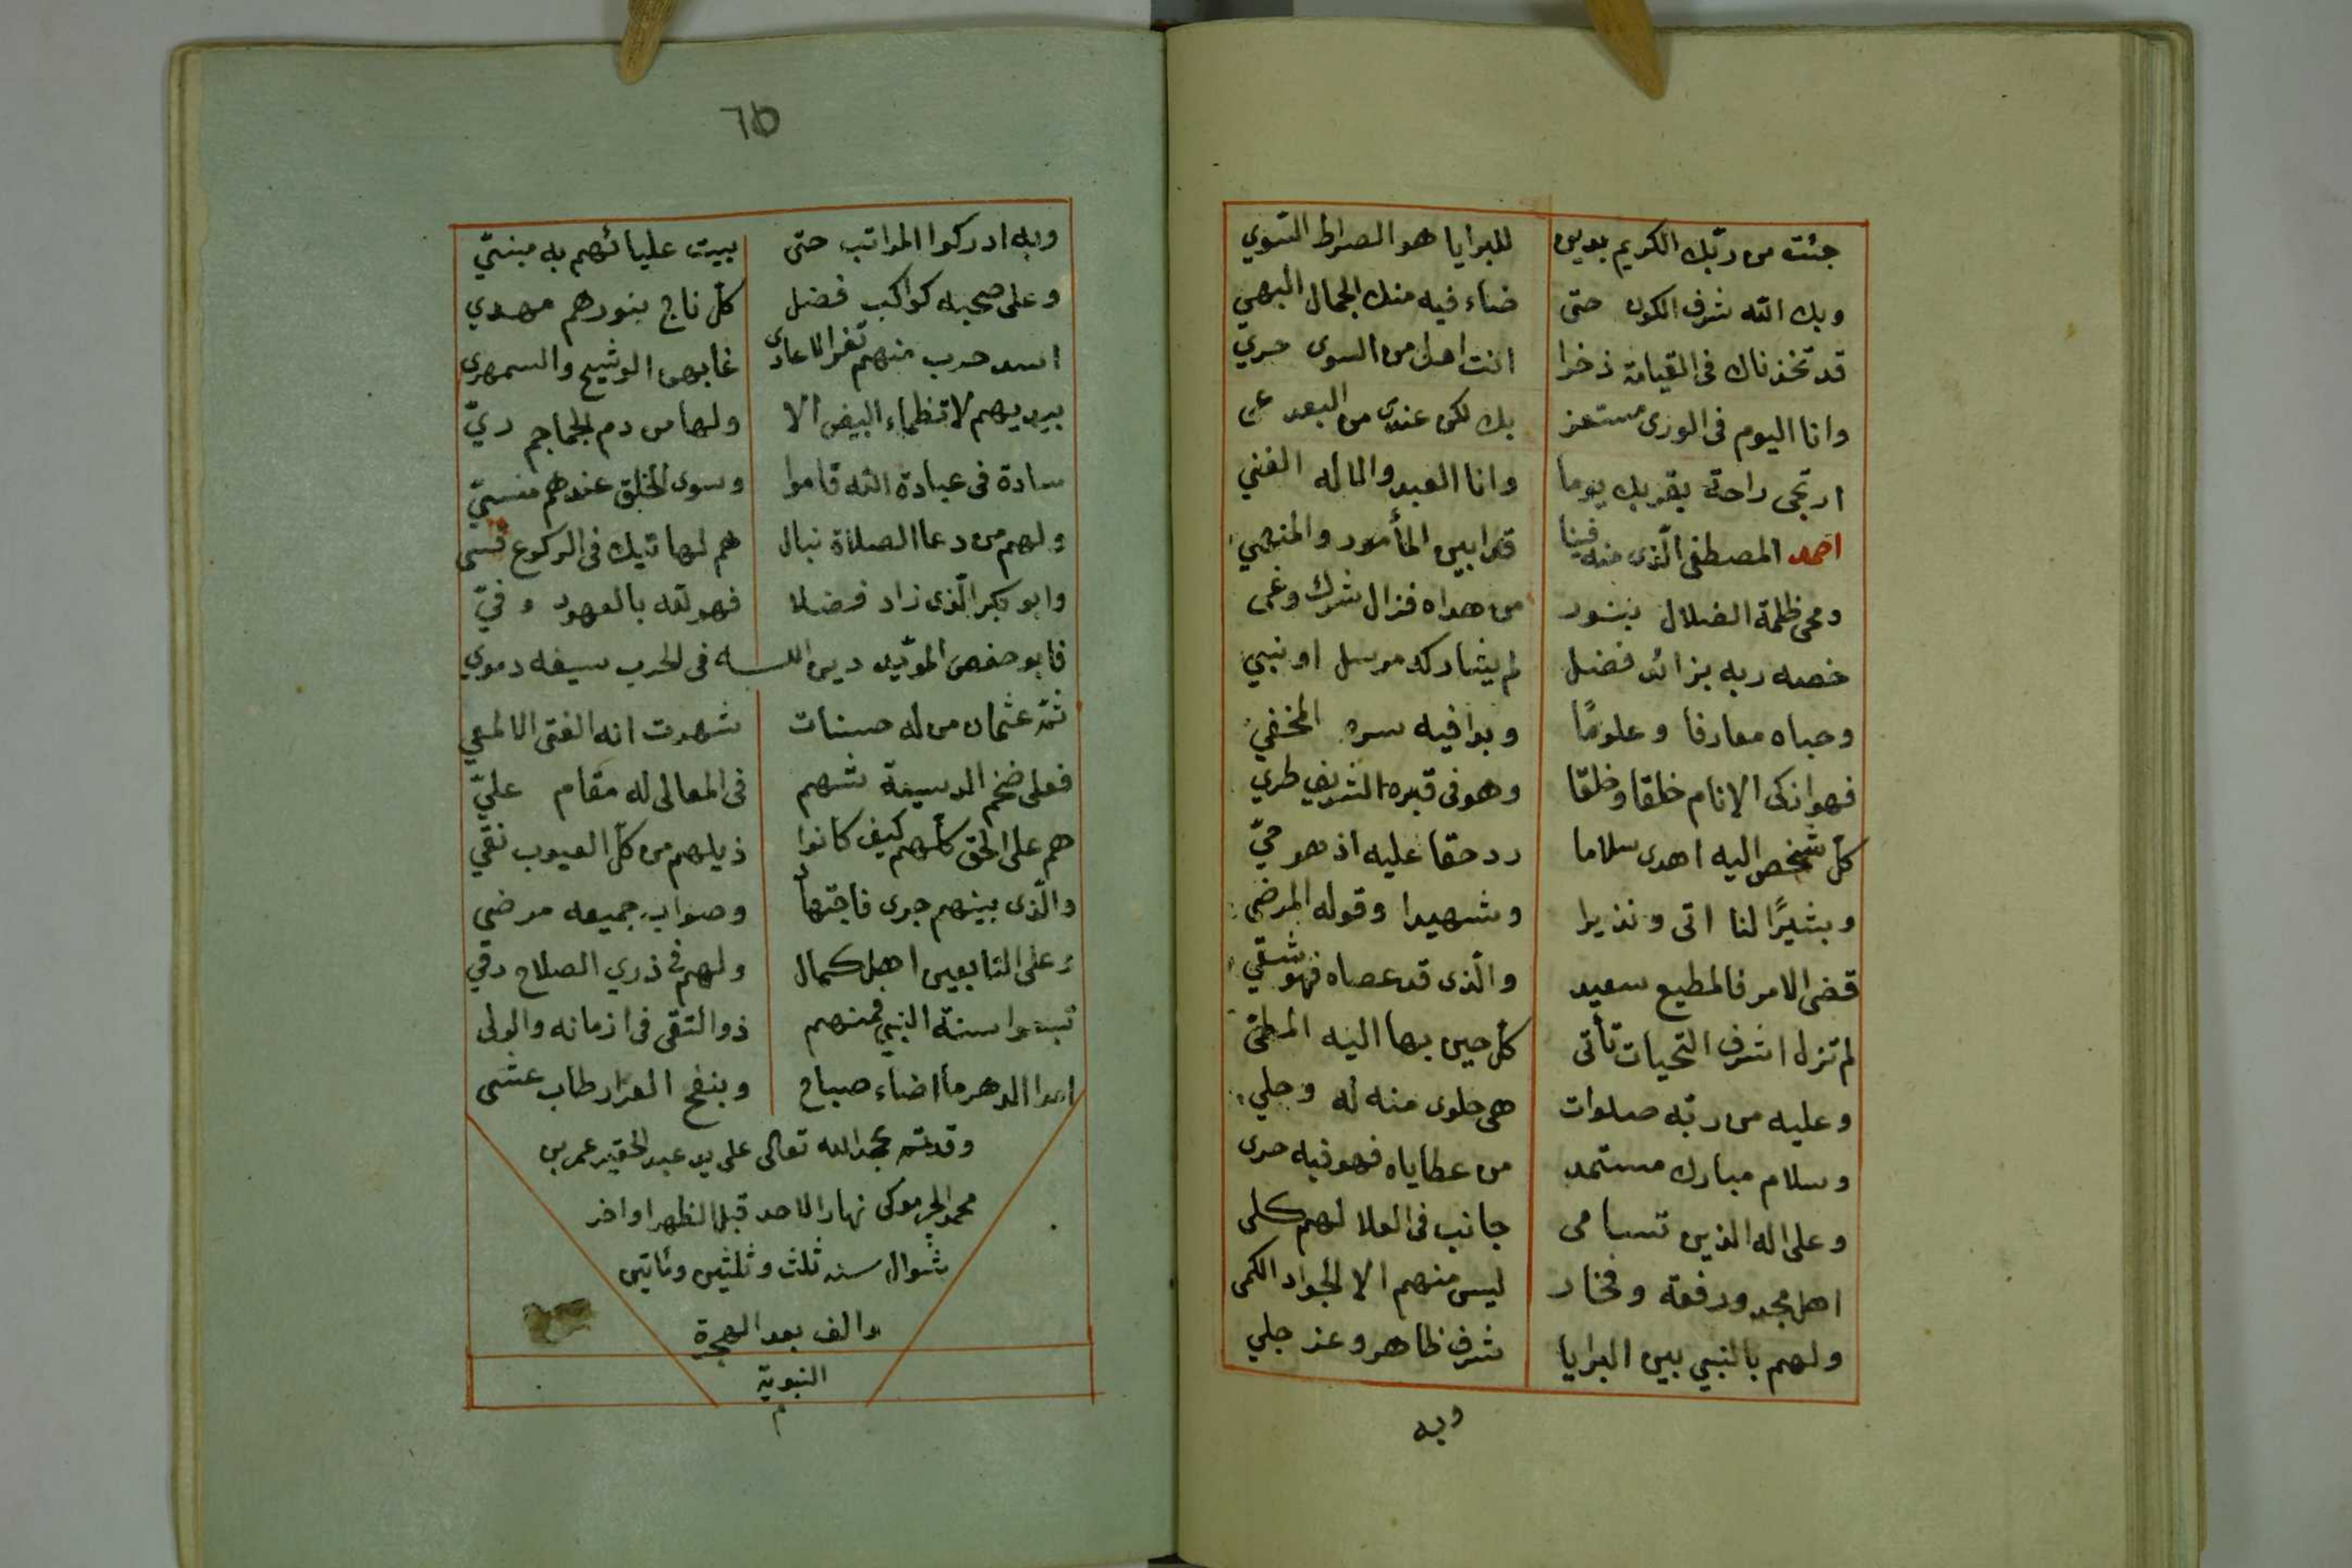 جئت من ربّك الكريم بدين للبرايا هو الصراط السّوي
وبك الله شرف الكون حتى ضاء فيه منك الجمال البهي
قد تخذناك فى القيامة ذخرا انت اهل من السوى حريّ
وانا اليوم فى الورى مستعز بك لكن عندى من البعد عي
ارتجى راحة بقربك يوما وانا العبد والاله الغني
احمد المصطفى الّذى منه فينا قد ابين المأمور والمنهي
ومحى ظلمة الضلال بنور من هداه فزال شرك وغى
خصه ربه بزائد فضل لم يشاركه مرسل او نبي
وحباه معارفا وعلومًا وبدا فيه سره المخفي
فهو ازكى الانام خلقا وخلقا وهو فى قبره الشريف طري
كلّ شخص اليه اهدى سلاما رد حقا عليه اذ هو حيّ
وبشيرًا لنا اتى ونذيرا وشهيدا وقوله المرضي
قضى الامر فالمطيع سعيد والّذى قد عصاه فهو شقي
لم تزل اشرف التحيات تأتى كلّ حين بها اليه المطى
وعليه من ربّه صلوات هى حلوى منه له وحلي
وسلام مبارك مستمد من عطاياه فهو فيه حرى
وعلى اله الذين تسامى جانب فى العلا لهم كلى
اهل مجد ورفعة وفخار ليس منهم الا الجواد الكمى
ولهم بالنبي بين البرايا شرف ظاهر وعز جلي
وبه
٦٥
وبه ادركوا المراتب حتى بيت عليائهم به مبنيّ
وعلى صحبه كواكب فضل كلّ ناج بنورهم مهدي
اسد حرب منهم تفر الاعادى غابهن الوشيج والسمهرى
بيديهم لا تظماء البيض الا ولها من دم الجماجم ريّ
سادة فى عبادة الله قاموا وسوى الخلق عندهم منسيّ
ولهم من دعا الصلاة نبال هم لها تيك فى الركوع قسى
وابو بكر الّذى زاد فضلا فهو لله بالعهود وفيّ
فابو حفص المويّد دين اللـــه فى الحرب سيفه دموي
ثمّ عثمان من له حسنات شهدت انه الفتى الالمعي
فعلى ضخم الدسيعة شهم فى المعالى له مقام عليّ
هم على الحق كلّهم كيف كانوا ذيلهم من كلّ العيوب نقي
والّذى بينهم جرى فاجتهادٌ وصواب جميعه مرضى
وعلى التابعين اهل كمال ولهم فى ذري الصلاح رقي
تبعوا سنة النبي فمنهم ذو التقى فى ازمانه والولى
امدا الدهر ما اضاء صباح وبنفح العرار طاب عشى
وقد تمّ بحمد الله تعالى على يد عبد الحقير عمر بن
محمد الجرموكى نهار الاحد قبل الظهر اواخر
شوال سنه ثلث وثلثين ومائتين
والف بعد الهجرة
النبويّة
م